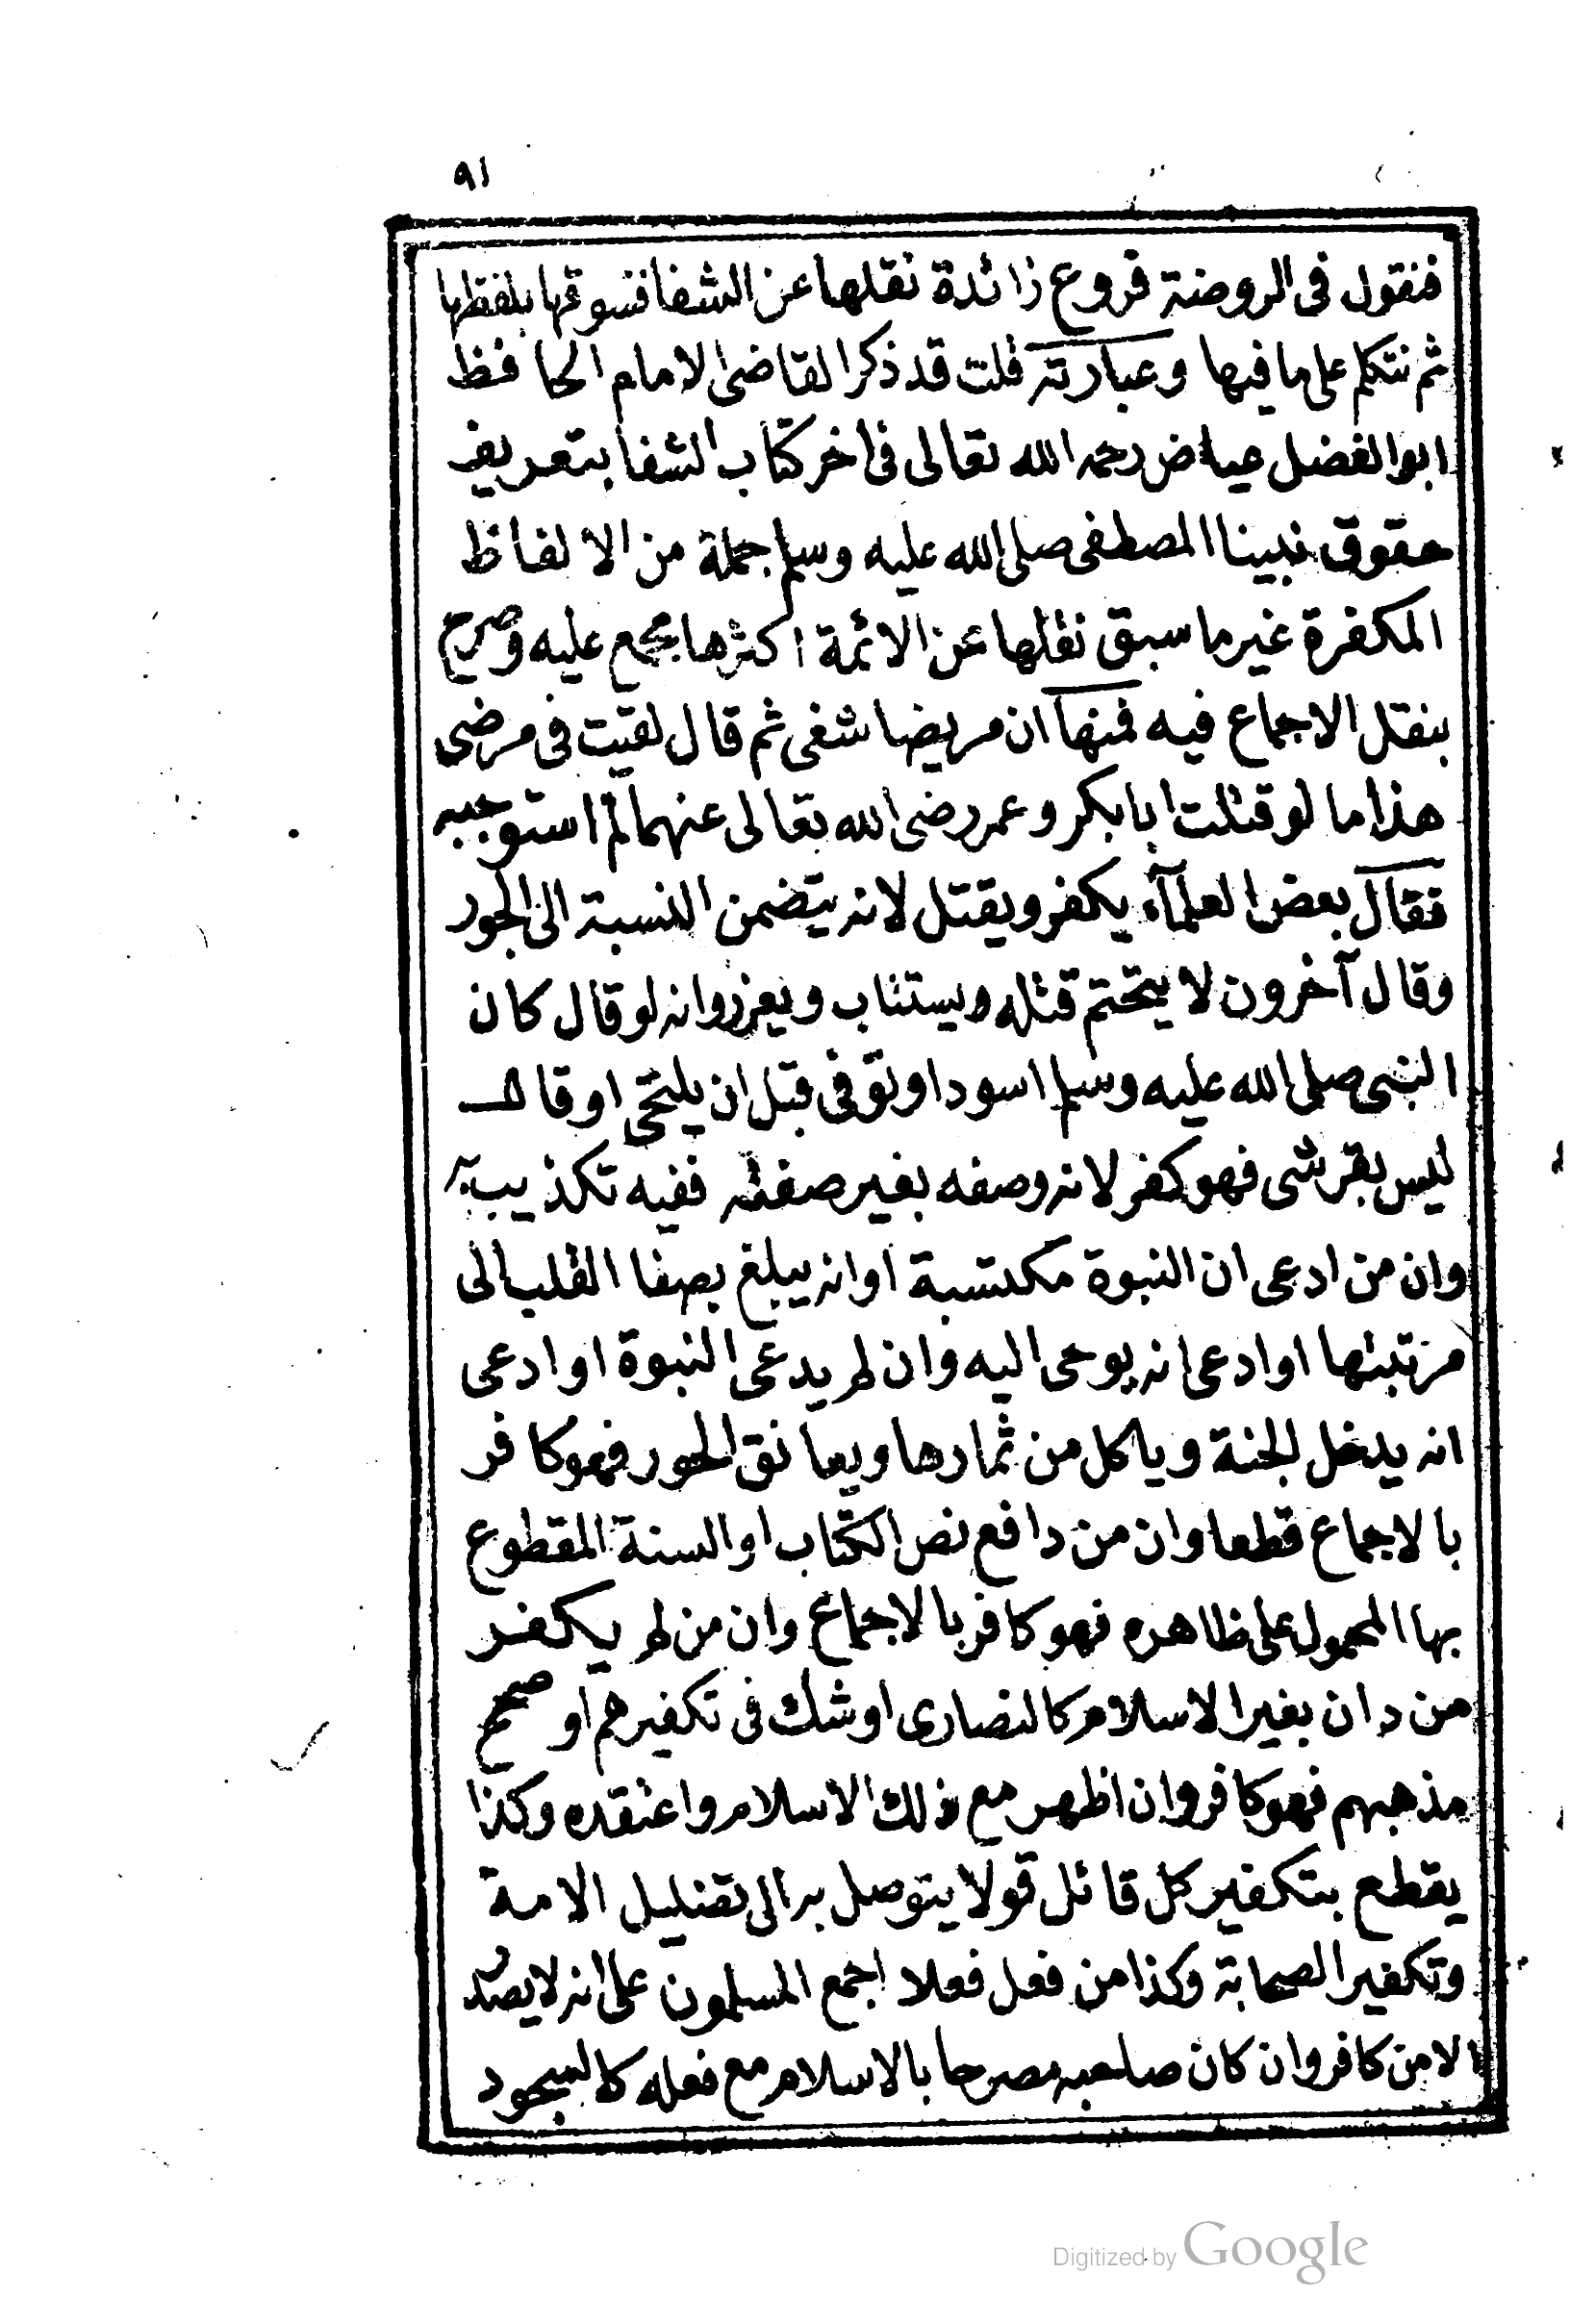 ٩١
فنقول فى الروضة فروع زائدة نقلها عن الشفا فنسوقها بلفظها
ثم نتكلم على ما فيها وعبارته قلت قد ذكر القاضى الامام الحافظ
ابو الفضل عياض رحمه الله تعالى فى اخر كتاب الشفا بتعريف
حقوق نبينا المصطفى صلى الله عليه وسلم جملة من الالفاظ
المكفرة غير ما سبق نقلها عن الائمة اكثرها مجمع عليه وصرح
بنقل الاجماع فيه فمنها ان مريضا شفى ثم قال لقيت فى مرضى
هذا ما لو قتلت ابا بكر وعمر رضى الله تعالى عنهما لم استوجبه
فقال بعض العلمآء يكفر ويقتل لانه يتضمن النسبة الى الجور
وقال آخرون لا يتحتم قتله ويستتاب ويعزر وانه لو قال كان
النبى صلى الله عليه وسلم اسود او توفى قبل ان يلتحى او قال
ليس بقرشى فهو كفر لانه وصفه بغير صفته ففيه تكذيب به
وان من ادعى ان النبوة مكتسبة او انه يبلغ بصفا القلب الى
مرتبتها او ادعى انه يوحى اليه وان لم يدعى النبوة او ادعى
انه يدخل الجنة وياكل من ثمارها ويعانق الحور فهو كافر
بالاجماع قطعا وان من دافع نص الكتاب او السنة المقطوع
بها المحمول على ظاهره فهو كافر بالاجماع وان من لم يكفر
من دان بغير الاسلام كالنصارى او شك فى تكفيرهم او صحح
مذهبهم فهو كافر وان اظهر مع ذلك الاسلام واعتقده وكذا
يقطع بتكفير كل قائل قولا يتوصل به الى تضليل الامة
وتكفير الصحابة وكذا من فعل فعلا اجمع المسلمون على انه لا يصدر
الا من كافر وان كان صاحبه مصرحا بالاسلام مع فعله كالسجود
Digitized by Google